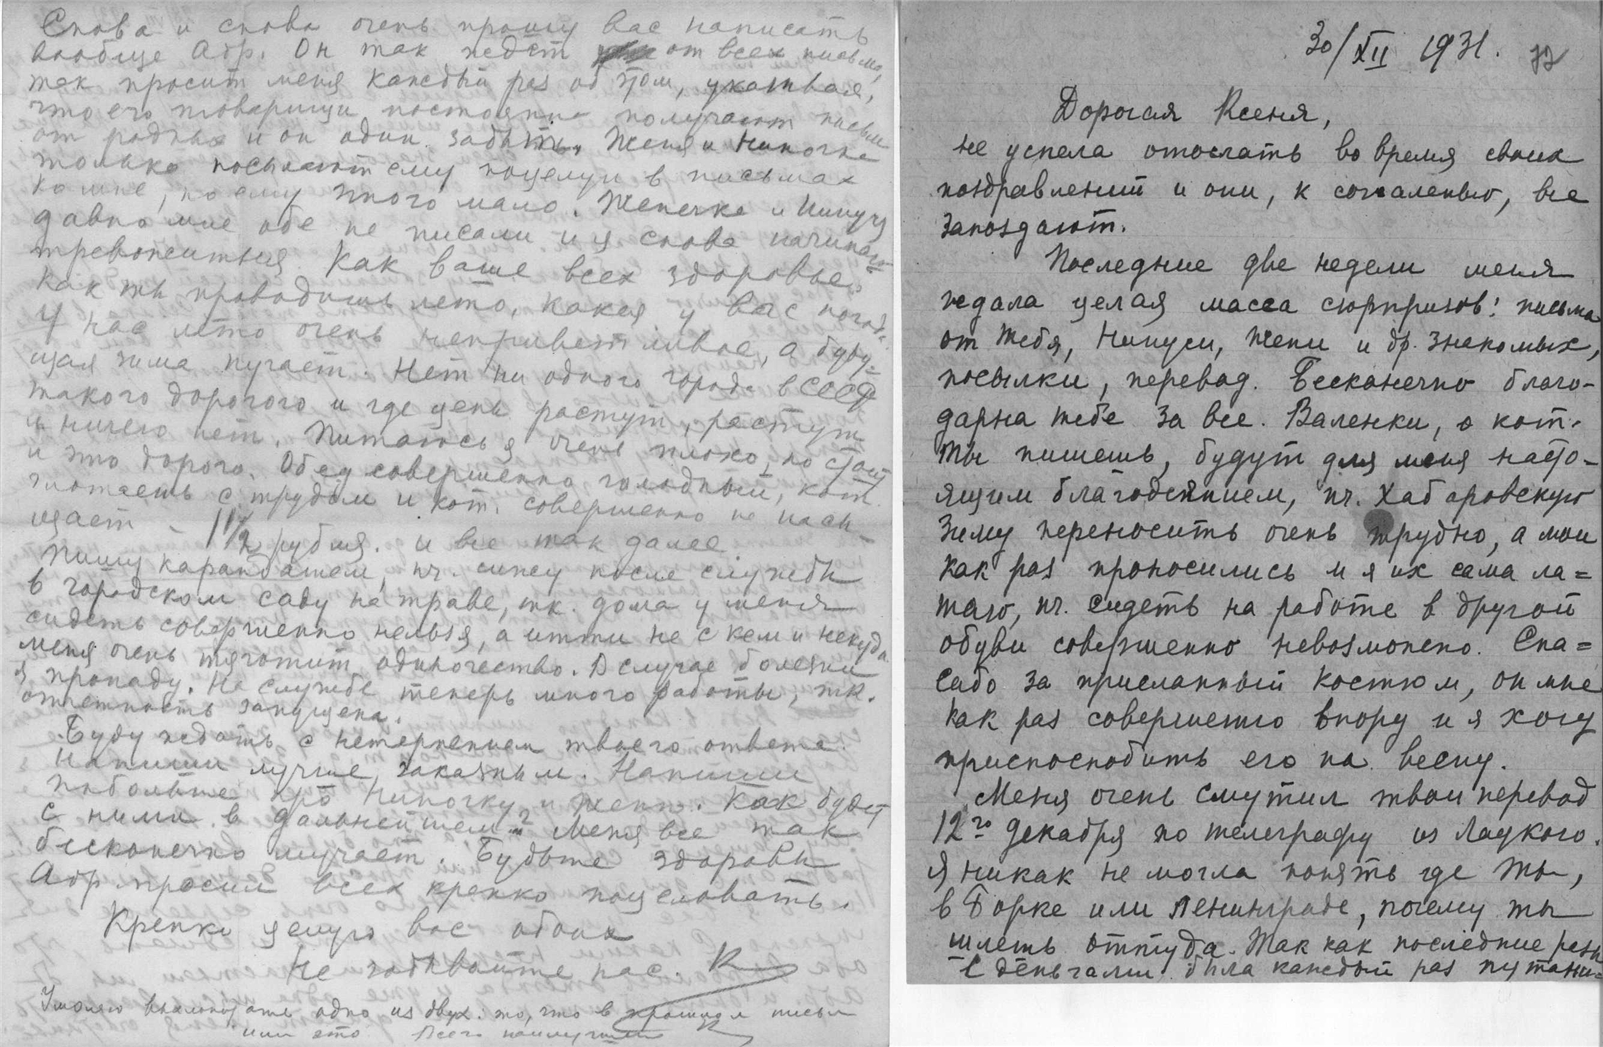 Снова и снова очень прошу вас написать
вообще Абр. Он так ждет от всех письма,
так просит меня каждый раз об этом, указывая,
что его товарищи постоянно получают письма
от родных и он один забыт. Женя и Ниночка
только посылают ему поцелуи в письмах
ко мне, но ему этого мало. Женечка и Нинуся
давно мне обе не писали и я снова начинаю
тревожиться. Как ваше всех здоровье.
Как ты проводишь лето, какая у вас погода.
У нас лето очень неприветливое, а буду-
щая зима пугает. Нет ни одного города в СССР
такого дорогого и где цены растут, растут
и ничего нет. Питаюсь я очень плохо, но стоит
и это дорого. Обед совершенно голодный, кот.
глотаешь с трудом и кот. совершенно не насы-
щает – 1 1/2 рубля. и все так далее.
Пишу карандашем, пч. сижу после службы
в городском саду на траве, тк. дома у меня
сидеть совершенно нельзя, а итти не с кем и некуда
меня очень тяготит одиночество. В случае болезни
я пропаду. На службе теперь много работы, тк.
отчетность запущена.
Буду ждать с нетерпением твоего ответа.
Напиши лучше заказным. Напиши
побольше про Ниночку и Женю. Как будет
с ними в дальнейшем? Меня все так
бесконечно мучает. Будьте здоровы
Абр. просил всех крепко поцеловать.
Крепко целую вас обоих
Не забывайте нас.
Умоляю одно из двух: то, что в прошлом письме
или это. Всего наилучшего
30/XII 1931.
72
Дорогая Ксеня,
не успела отослать во время своих
поздравлений и они, к сожаленью, все
запоздают.
Последние две недели меня
ждала целая масса сюрпризов: письма
от тебя, Нинуси, Жени и др. знакомых,
посылки, перевод. Бесконечно благо-
дарна тебе за все. Валенки, о кот.
ты пишешь, будут для меня насто-
ящим благодеянием, пч. Хабаровскую
зиму переносить очень трудно, а мои
как раз проносились и я их сама ла=
таю, пч. сидеть на работе в другой
обуви совершенно невозможно. Спа=
сибо за присланный костюм, он мне
как раз совершенно впору и я хочу
приспособить его на весну.
Меня очень смутил твой перевод
12го декабря по телеграфу из Лоцкого.
Я никак не могла понять где ты,
в Борке или Ленинграде, почему ты
шлешь оттуда. Так как последние разы
с деньгами была каждый раз путани=